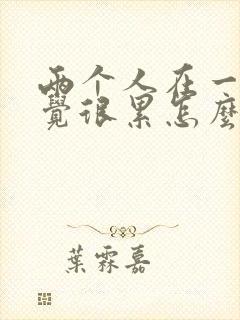 两个人在一
覺很累怎麼
葉霖嘉